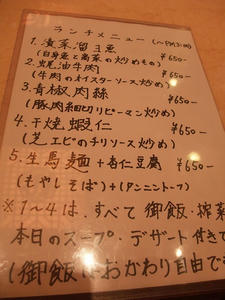 ランチメニュー (〜PM3:00)
1.漬菜溜魚 ¥650-
(白身魚と高菜の炒めもの)
2.蚝油牛肉 ¥650-
(牛肉のオイスターソース炒め)
3.青椒肉絲 ¥650-
(豚肉細切りピーマン炒め)
4.干焼蝦仁 ¥650-
(芝エビのチリソース炒め)
5.生馬麺+杏仁豆腐 ¥650-
(もやしそば)+(アンニントーフ)
※1〜4は、すべて御飯・搾菜
本日のスープ・デザート付きで
(御飯はおかわり自由で